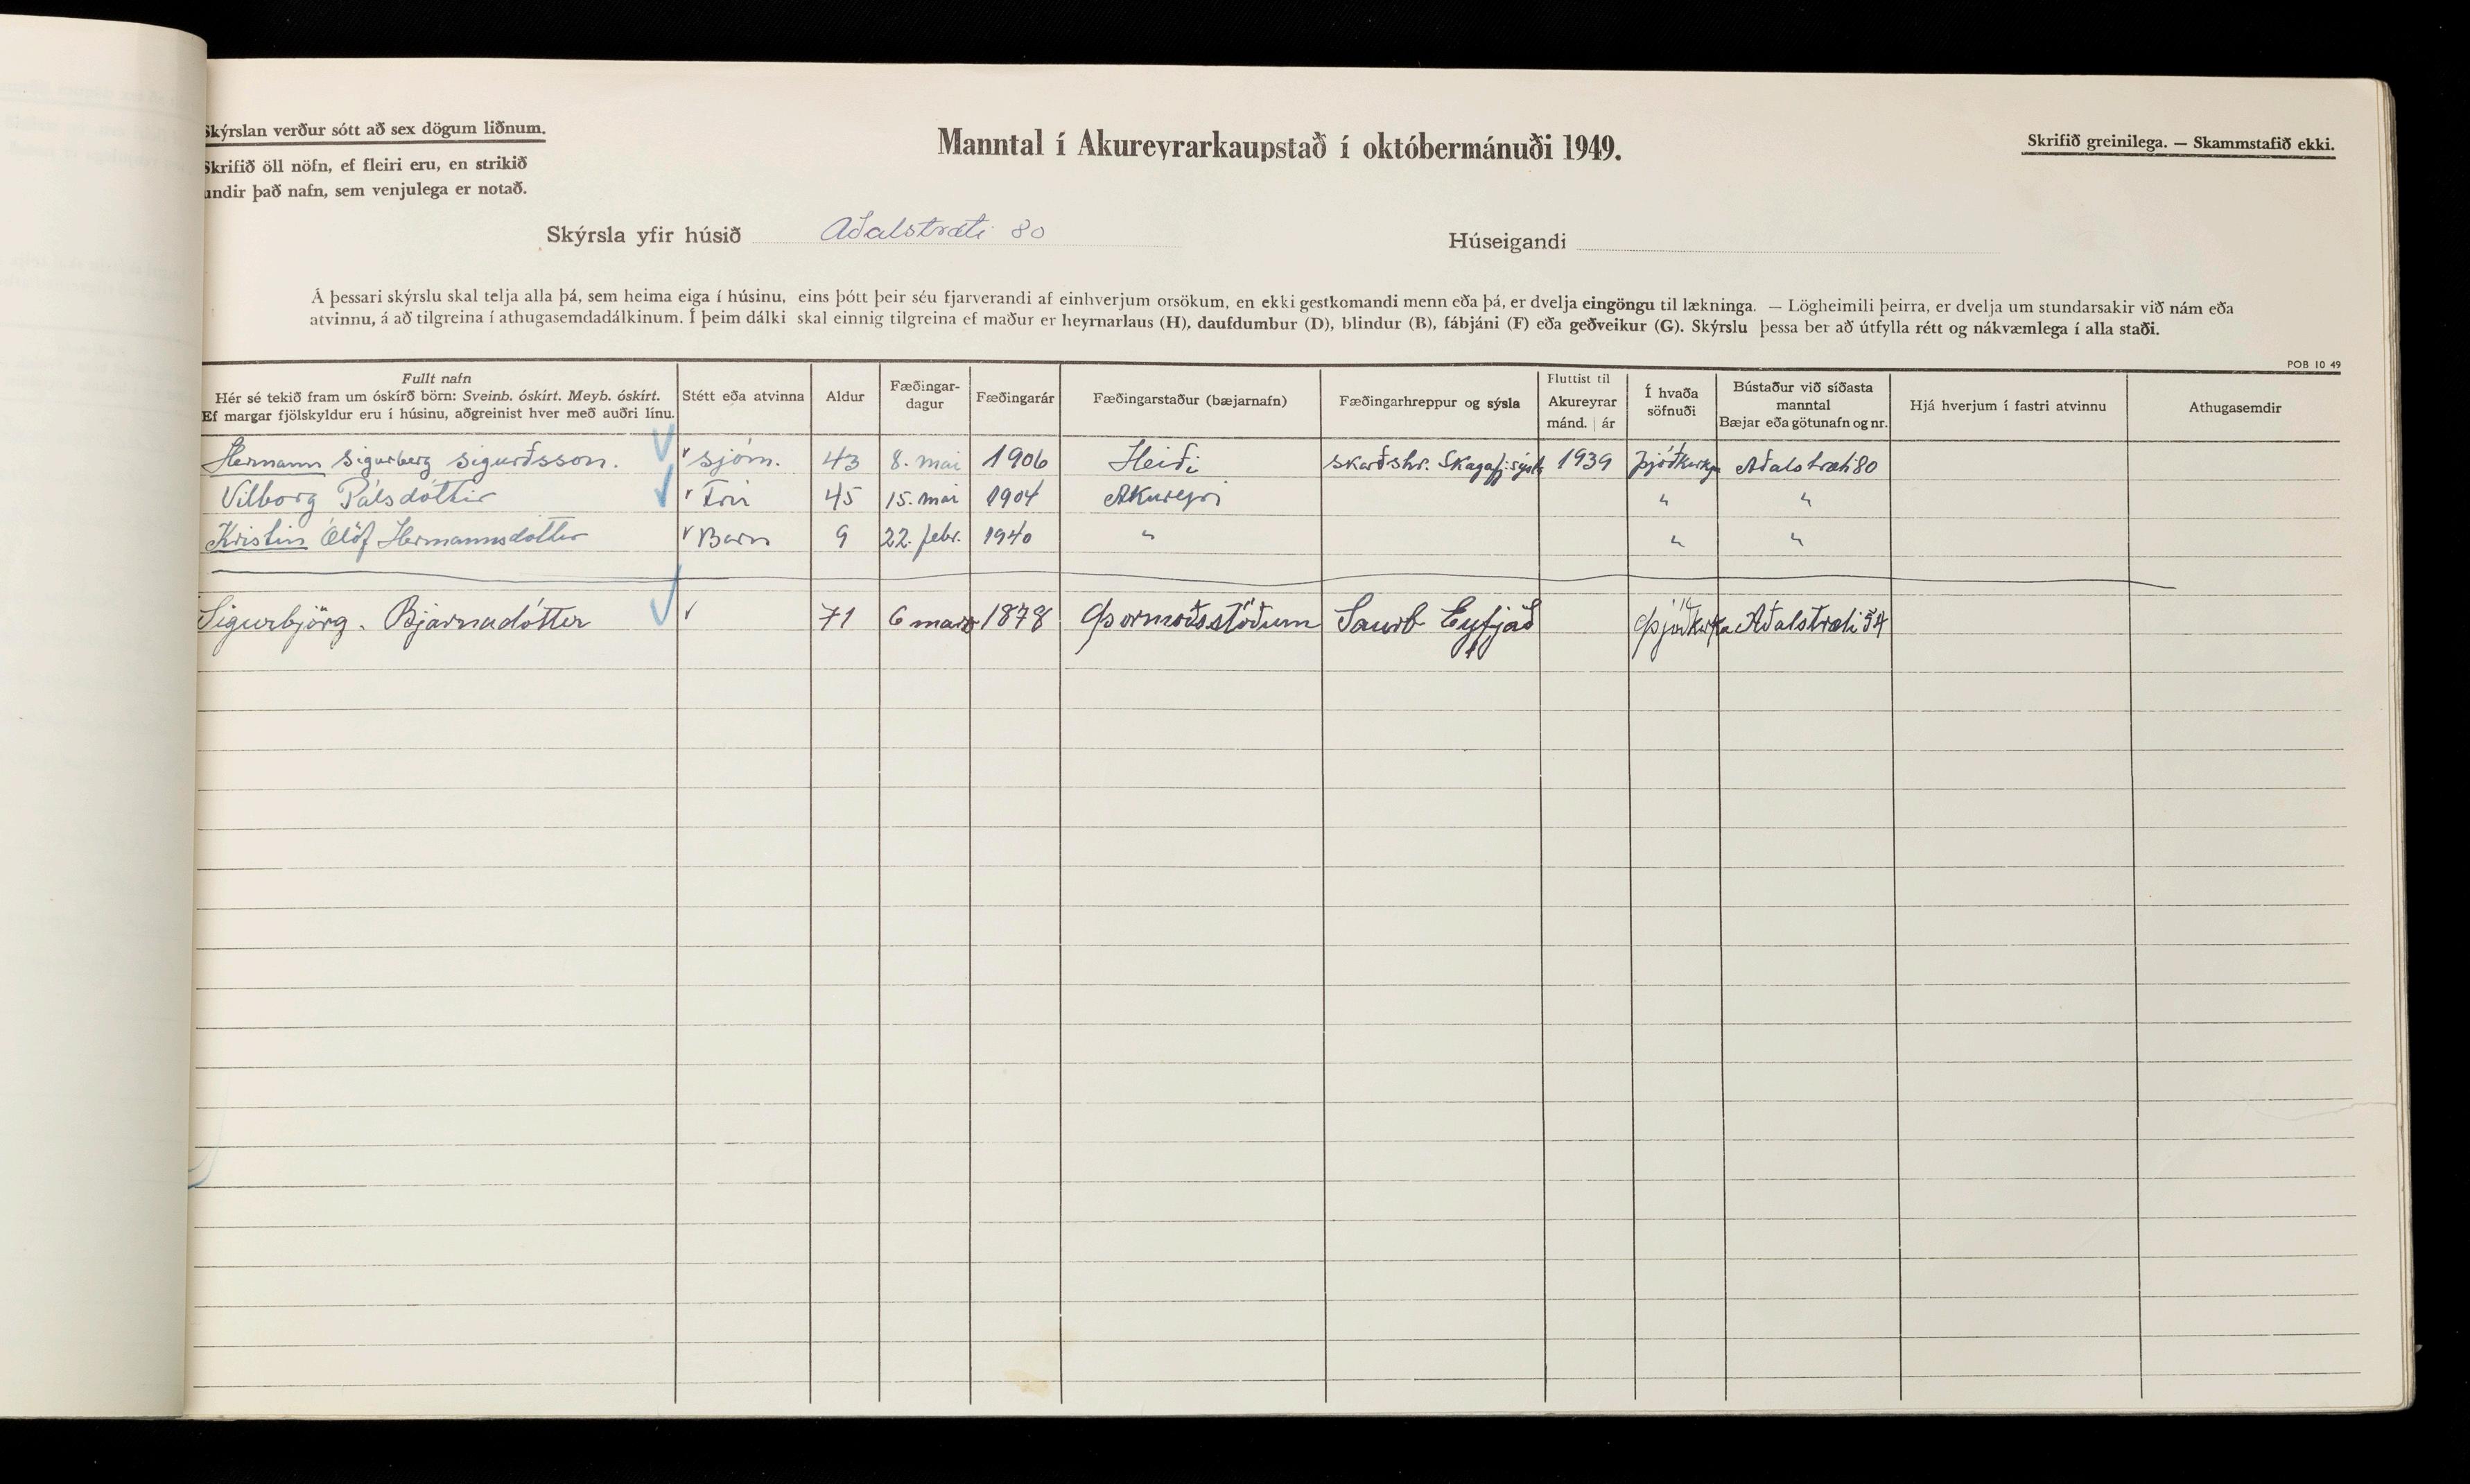 Skýrslan verður sótt að sex dögum liðnum.
Skrifið öll nöfn, ef fleiri eru, en strikið
undir það nafn, sem venjulega er notað.
Manntal í Akureyrarkaupstað í októbermánuði 1949.
Skrifið greinilega. — Skammstafið ekki.
Skýrsla yfir húsið Aðalstræti 80
Húseigandi
Á þessari skýrslu skal telja alla þá, sem heima eiga í húsinu, eins þótt þeir séu fjarverandi af einhverjum orsökum, en ekki gestkomandi menn eða þá, er dvelja eingöngu til lækninga. — Lögheimili þeirra, er dvelja um stundarsakir við nám eða
atvinnu, á að tilgreina í athugasemdadálkinum. Í þeim dálki skal einnig tilgreina ef maður er heyrnarlaus (H), daufdumbur (D), blindur (B), fábjáni (F) eða geðveikur (G). Skýrslu þessa ber að útfylla rétt og nákvæmlega í alla staði.
POB 10 49
Fullt nafn
Hér sé tekið fram um óskírð börn: Sveinb. óskírt. Meyb. óskírt.
Ef margar fjölskyldur eru í húsinu, aðgreinist hver með auðri línu.
Stétt eða atvinna
Aldur
Fæðingar-
dagur
Fæðingarár
Fæðingarstaður (bæjarnafn)
Fæðingarhreppur og sýsla
Fluttist til
Akureyrar
mánd. | ár
Í hvaða
söfnuði
Bústaður við síðasta
manntal
Bæjar eða götunafn og nr.
Hjá hverjum í fastri atvinnu
Athugasemdir
Hermann Sigurberg Sigurðsson. Sjóm. 43 8. maí 1906 Heiði Skarðshr. Skagafj.sýsla 1939 Þjóðkirkja Aðalstræti 80
Vilborg Pálsdóttir Frú 45 15. maí 1904 Akureyri " "
Kristín Ólöf Hermannsdóttir Barn 9 22. febr. 1940 " " "
Sigurbjörg. Bjarnadóttir 71 6 mars 1878 Þormóðsstöðum Saurb Eyfjað Þjóðkirkja Aðalstræti 54